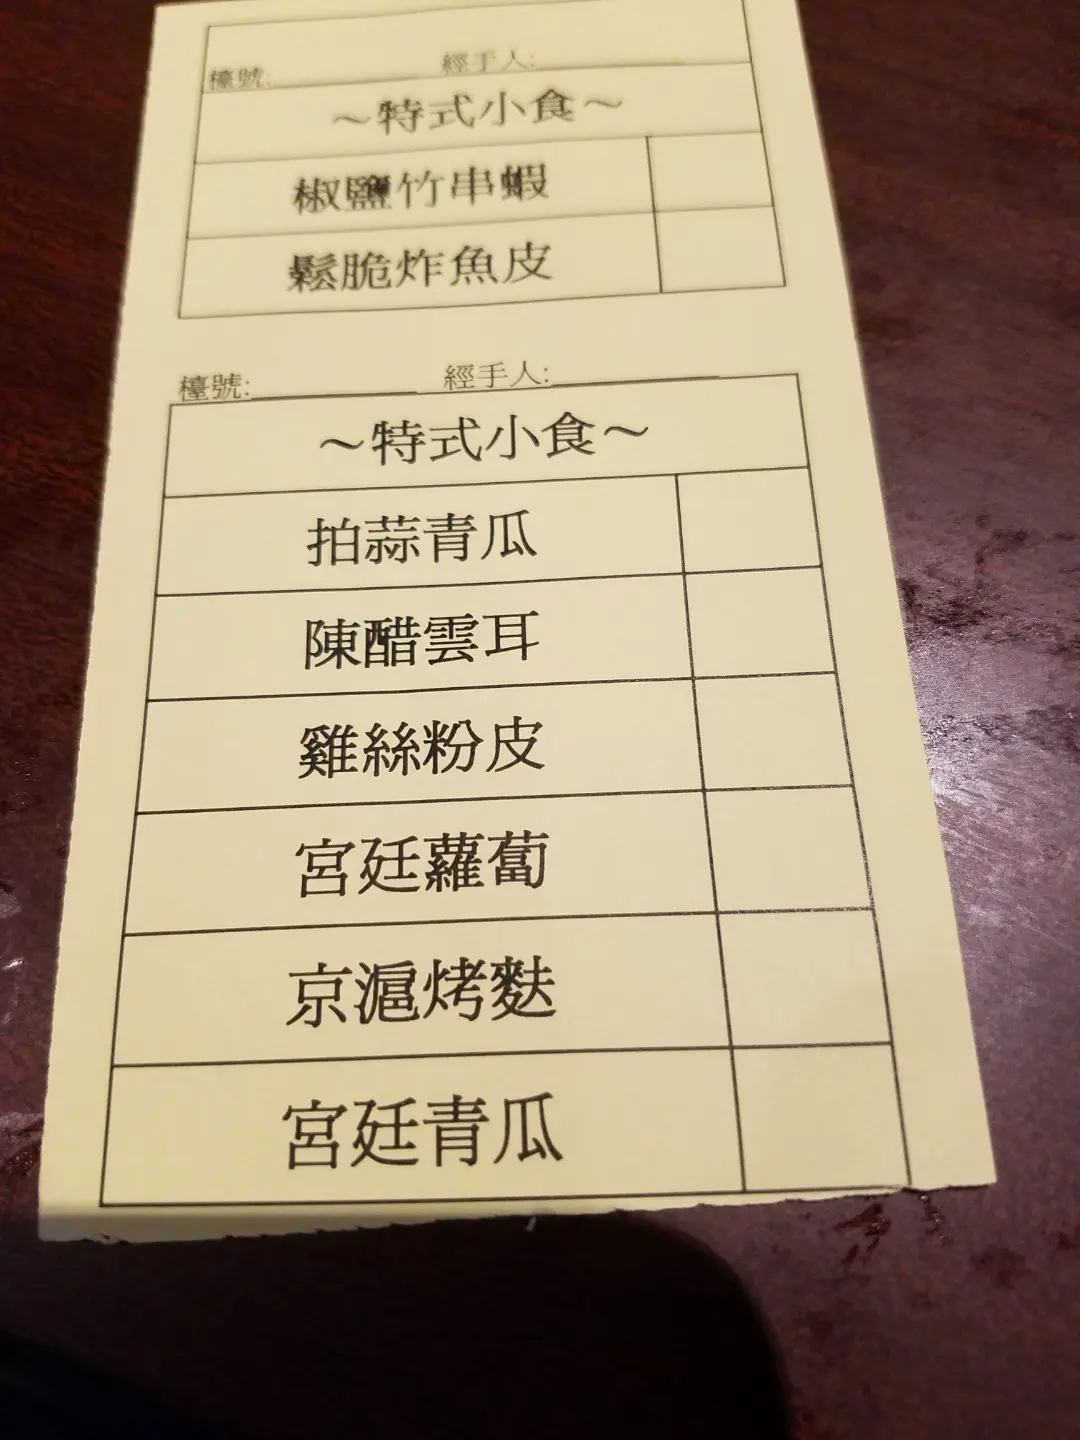 檯號:__________ 經手人:__________
～特式小食～
椒鹽竹串蝦
鬆脆炸魚皮
檯號:__________ 經手人:__________
～特式小食～
拍蒜青瓜
陳醋雲耳
雞絲粉皮
宮廷蘿蔔
京滬烤麩
宮廷青瓜